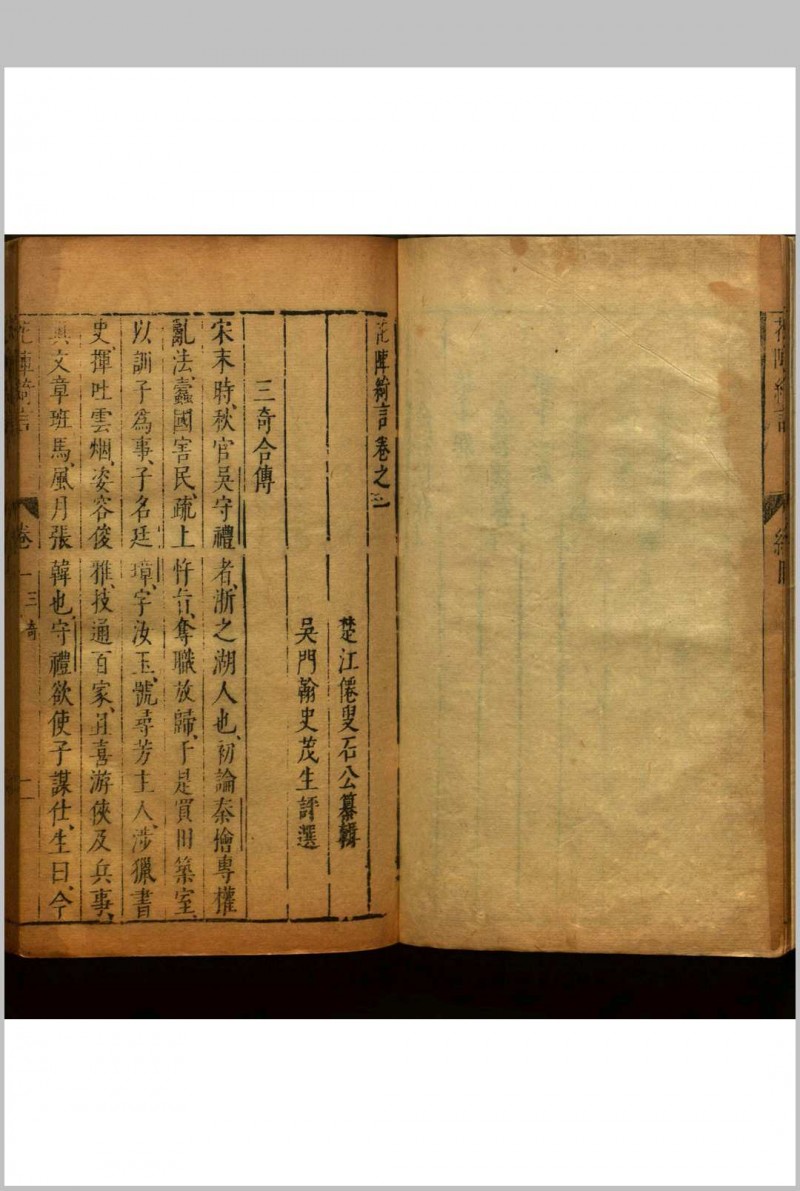 花陣綺言卷之一
楚江僊叟石公纂輯
吳門翰史茂生評選
三奇合傳
宋末時、秋官吳守禮者、浙之湖人也、初論秦檜專權
亂法、蠹國害民、疏上忤旨、奪職放歸、于是買田築室、
以訓子為事、子名廷璋、字汝玉、號尋芳主人、涉獵書
史、揮吐雲烟、姿容俊雅、技通百家、且喜游俠及兵事、
其文章班馬、風月張韓也、守禮欲使子謀仕、生曰、今
花陣綺言 卷一 三奇 一